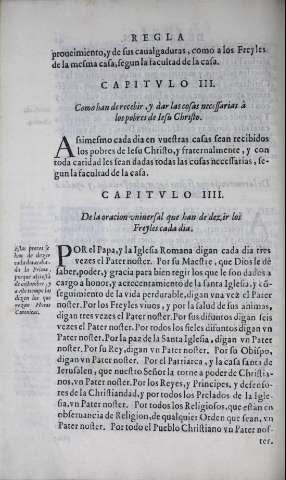 REGLA
proueimiento, y de sus caualgaduras, como a los Freyles
de la mesma casa, segun la facultad de la casa.
CAPITVLO III.
Como han de recebir, y dar las cosas necessarias à
los pobres de Iesu Christo.
Asimesmo cada dia en vuestras casas sean recibidos
los pobres de Iesu Christo, y fraternalmente, y con
toda caridad les sean dadas todas las cosas necessarias, se-
gun la facultad de la casa.
CAPITVLO IIII.
De la oracion vniuersal que han de dezir los
Freyles cada dia.
POR el Papa, y la Iglesia Romana digan cada dia tres
vezes el Pater noster. Por su Maestre, que Dios le dè
saber, poder, y gracia para bien regir los que le son dados a
cargo a honor, y acrecentamiento de la santa Iglesia, y cō
seguimiento de la vida perdurable, digan vna vez el Pater
noster. Por los Freyles viuos, y por la salud de sus animas,
digan tres vezes el Pater noster. Por sus difuntos digan seis
vezes el Pater noster. Por todos los fieles difuntos digan vn
Pater noster. Por la paz de la Santa Iglesia, digan vn Pater
noster. Por su Rey, digan vn Pater noster. Por su Obispo,
digan vn Pater noster. Por el Patriarca, y la casa santa de
Ierusalen, que nuestro Señor la torne a poder de Christia-
nos, vn Pater noster. Por los Reyes, y Principes, y defenso-
res de la Christiandad, y por todos los Prelados de la Igle-
sia, vn Pater noster. Por todos los Religiosos, que están en
obseruancia de Religion, de qualquier Orden que sean, vn
Pater noster. Por todo el Pueblo Christiano vn Pater nos-
ter.
Estos pater nr̃es
han de dezir
cada dia
la Prima,